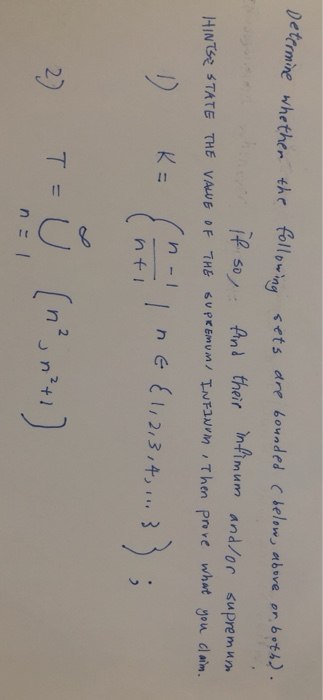 Determine whether the following sets are bounded (below, above or both).
if so, find their infimum and/or supremum
HINTS: STATE THE VALUE OF THE SUPREMUM/INFINUM, Then prove what you claim.
1) K = { n-1 / n+1 | n ∈ {1,2,3,4,...} } ;
2) T = ∞ ⋃ n=1 [n², n²+1)